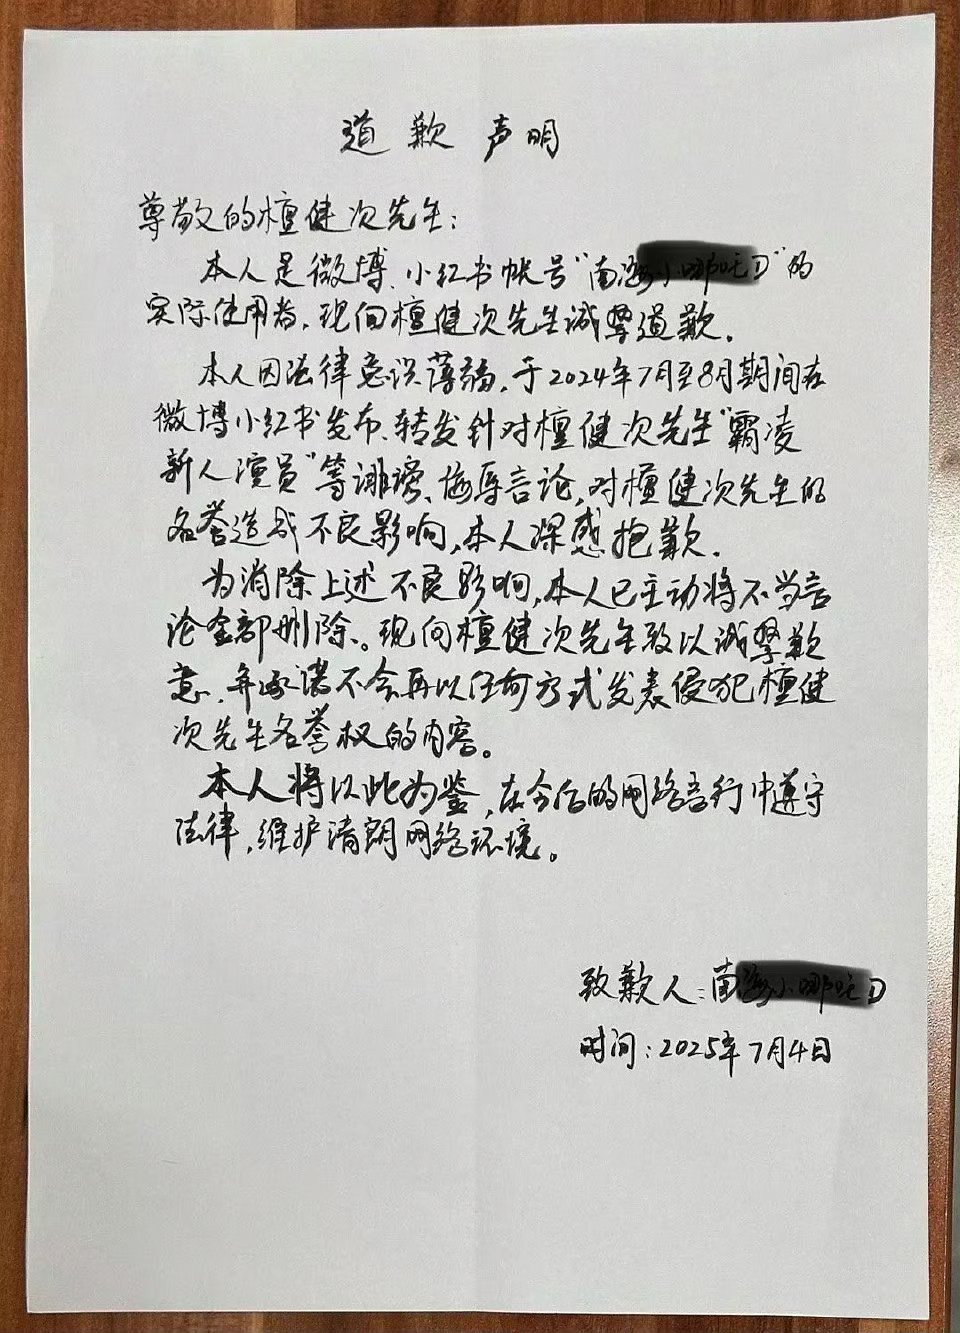 道歉声明
尊敬的檀健次先生:
本人是微博、小红书帐号“南 D”的
实际使用者,现向檀健次先生诚挚道歉。
本人因法律意识薄弱,于2024年7月至8月期间在
微博小红书发布、转发针对檀健次先生“霸凌
新人演员”等诽谤、侮辱言论,对檀健次先生的
名誉造成不良影响,本人深感抱歉。
为消除上述不良影响,本人已主动将不当言
论全部删除。现向檀健次先生致以诚挚歉
意,并承诺不会再以任何方式发表侵犯檀健
次先生名誉权的内容。
本人将以此为鉴,在今后的网络言行中遵守
法律,维护清朗网络环境。
致歉人:南 D
时间:2025年7月4日